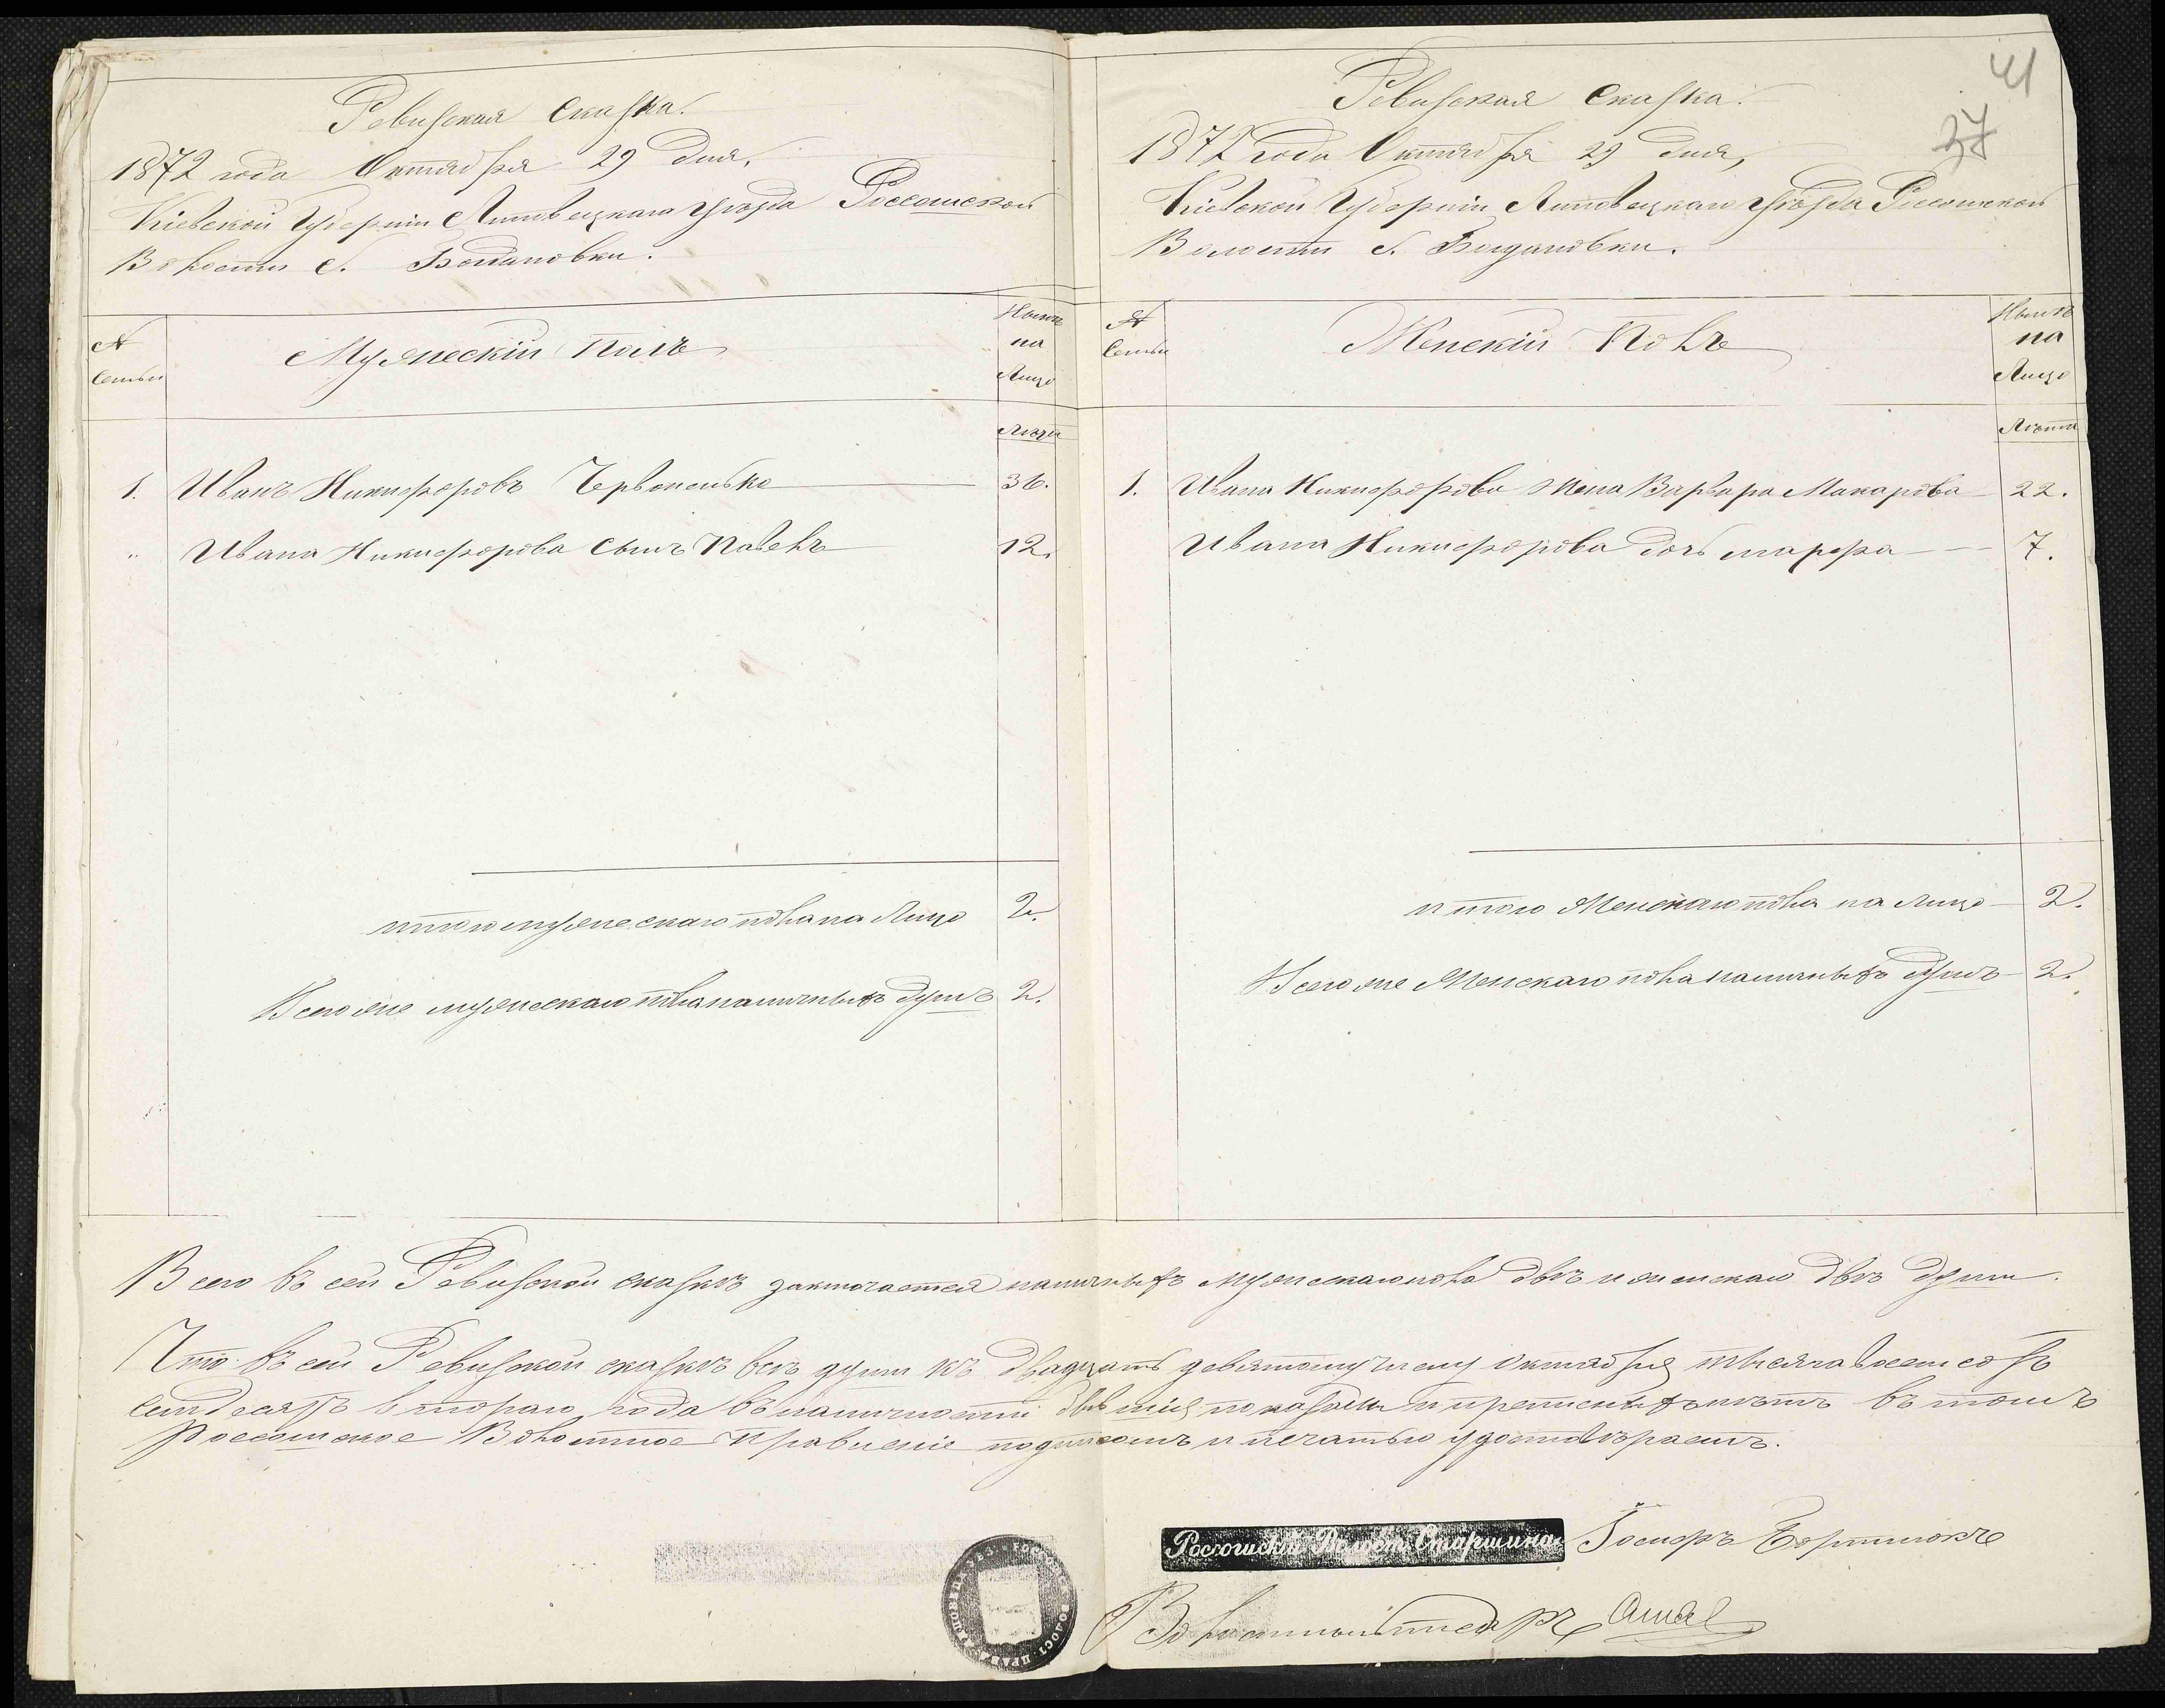 Ревизская Сказка.
1872 года Октября 29 дня,
Кіевской Губерніи Липовецкаго Уѣзда Россошской
Волости С. Богдановки.
№ Семьи
Мужескій Полъ
Нынѣ на Лицо
Лѣта
1. Иванъ Никифоровъ Червоненько 36.
" Ивана Никифорова Сынъ Павелъ 12.
итого мужескаго пола на Лицо 2.
Всего же мужескаго пола наличныхъ душъ 2.
41
37
Ревизская Сказка.
1872 года Октября 29 дня,
Кіевской Губерніи Липовецкаго Уѣзда Россошской
Волости С. Богдановки.
№ Семьи
Женскій Полъ
Нынѣ на Лицо
Лѣта
1. Ивана Никифорова Жена Варвара Макарова 22.
Ивана Никифорова дочь марфа 7.
итого Женскаго пола на лицо 2.
Всего же Женскаго пола наличныхъ душъ 2.
Всего въ сей Ревизской сказкѣ заключается наличныхъ мужескаго пола двѣ и женскаго двѣ души.
Что въ сей Ревизской сказкѣ всѣ души къ двадцать девятому числу октября тысяча восемсотъ
семдесятъ втораго года въ наличности показаны и прописныхъ нѣтъ въ томъ
Россошское Волостное Правленіе подписомъ и печатью удостовѣряетъ.
Россошскій Волост. Старшина Іосифъ Бортнюкъ
Волостный писарь